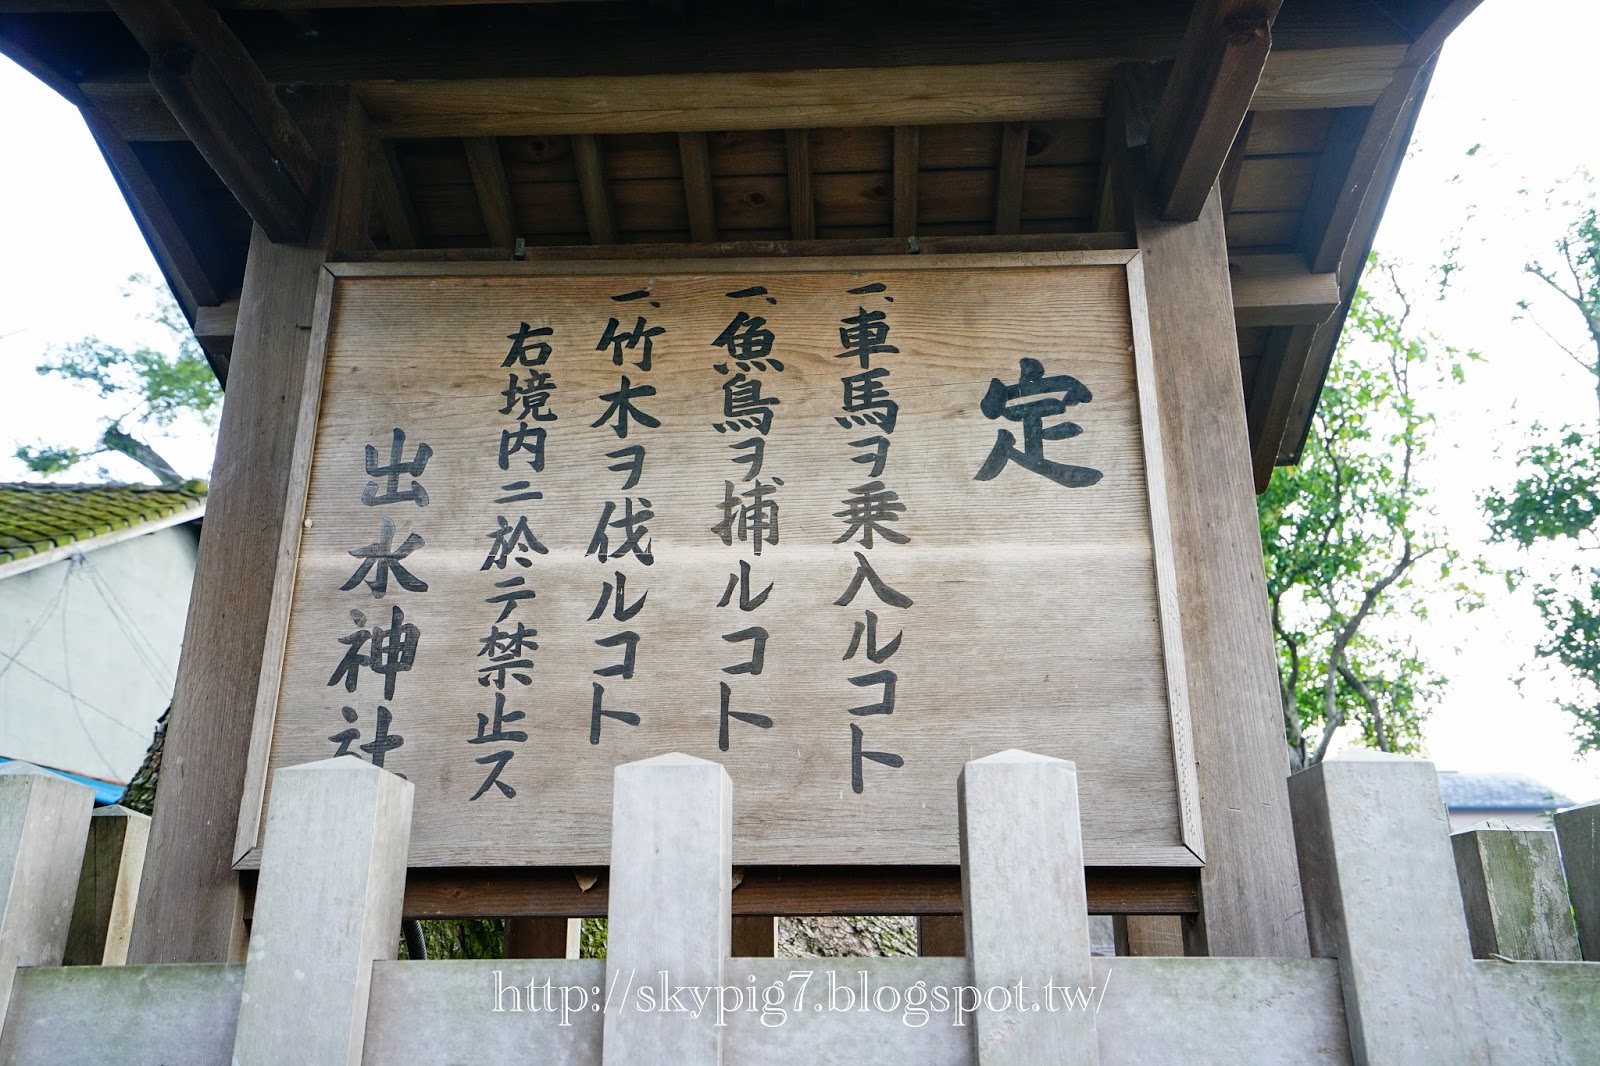 定
一、車馬ヲ乗入ルコト
一、魚鳥ヲ捕ルコト
一、竹木ヲ伐ルコト
右境内ニ於テ禁止ス
出水神社
http://skypig7.blogspot.tw/